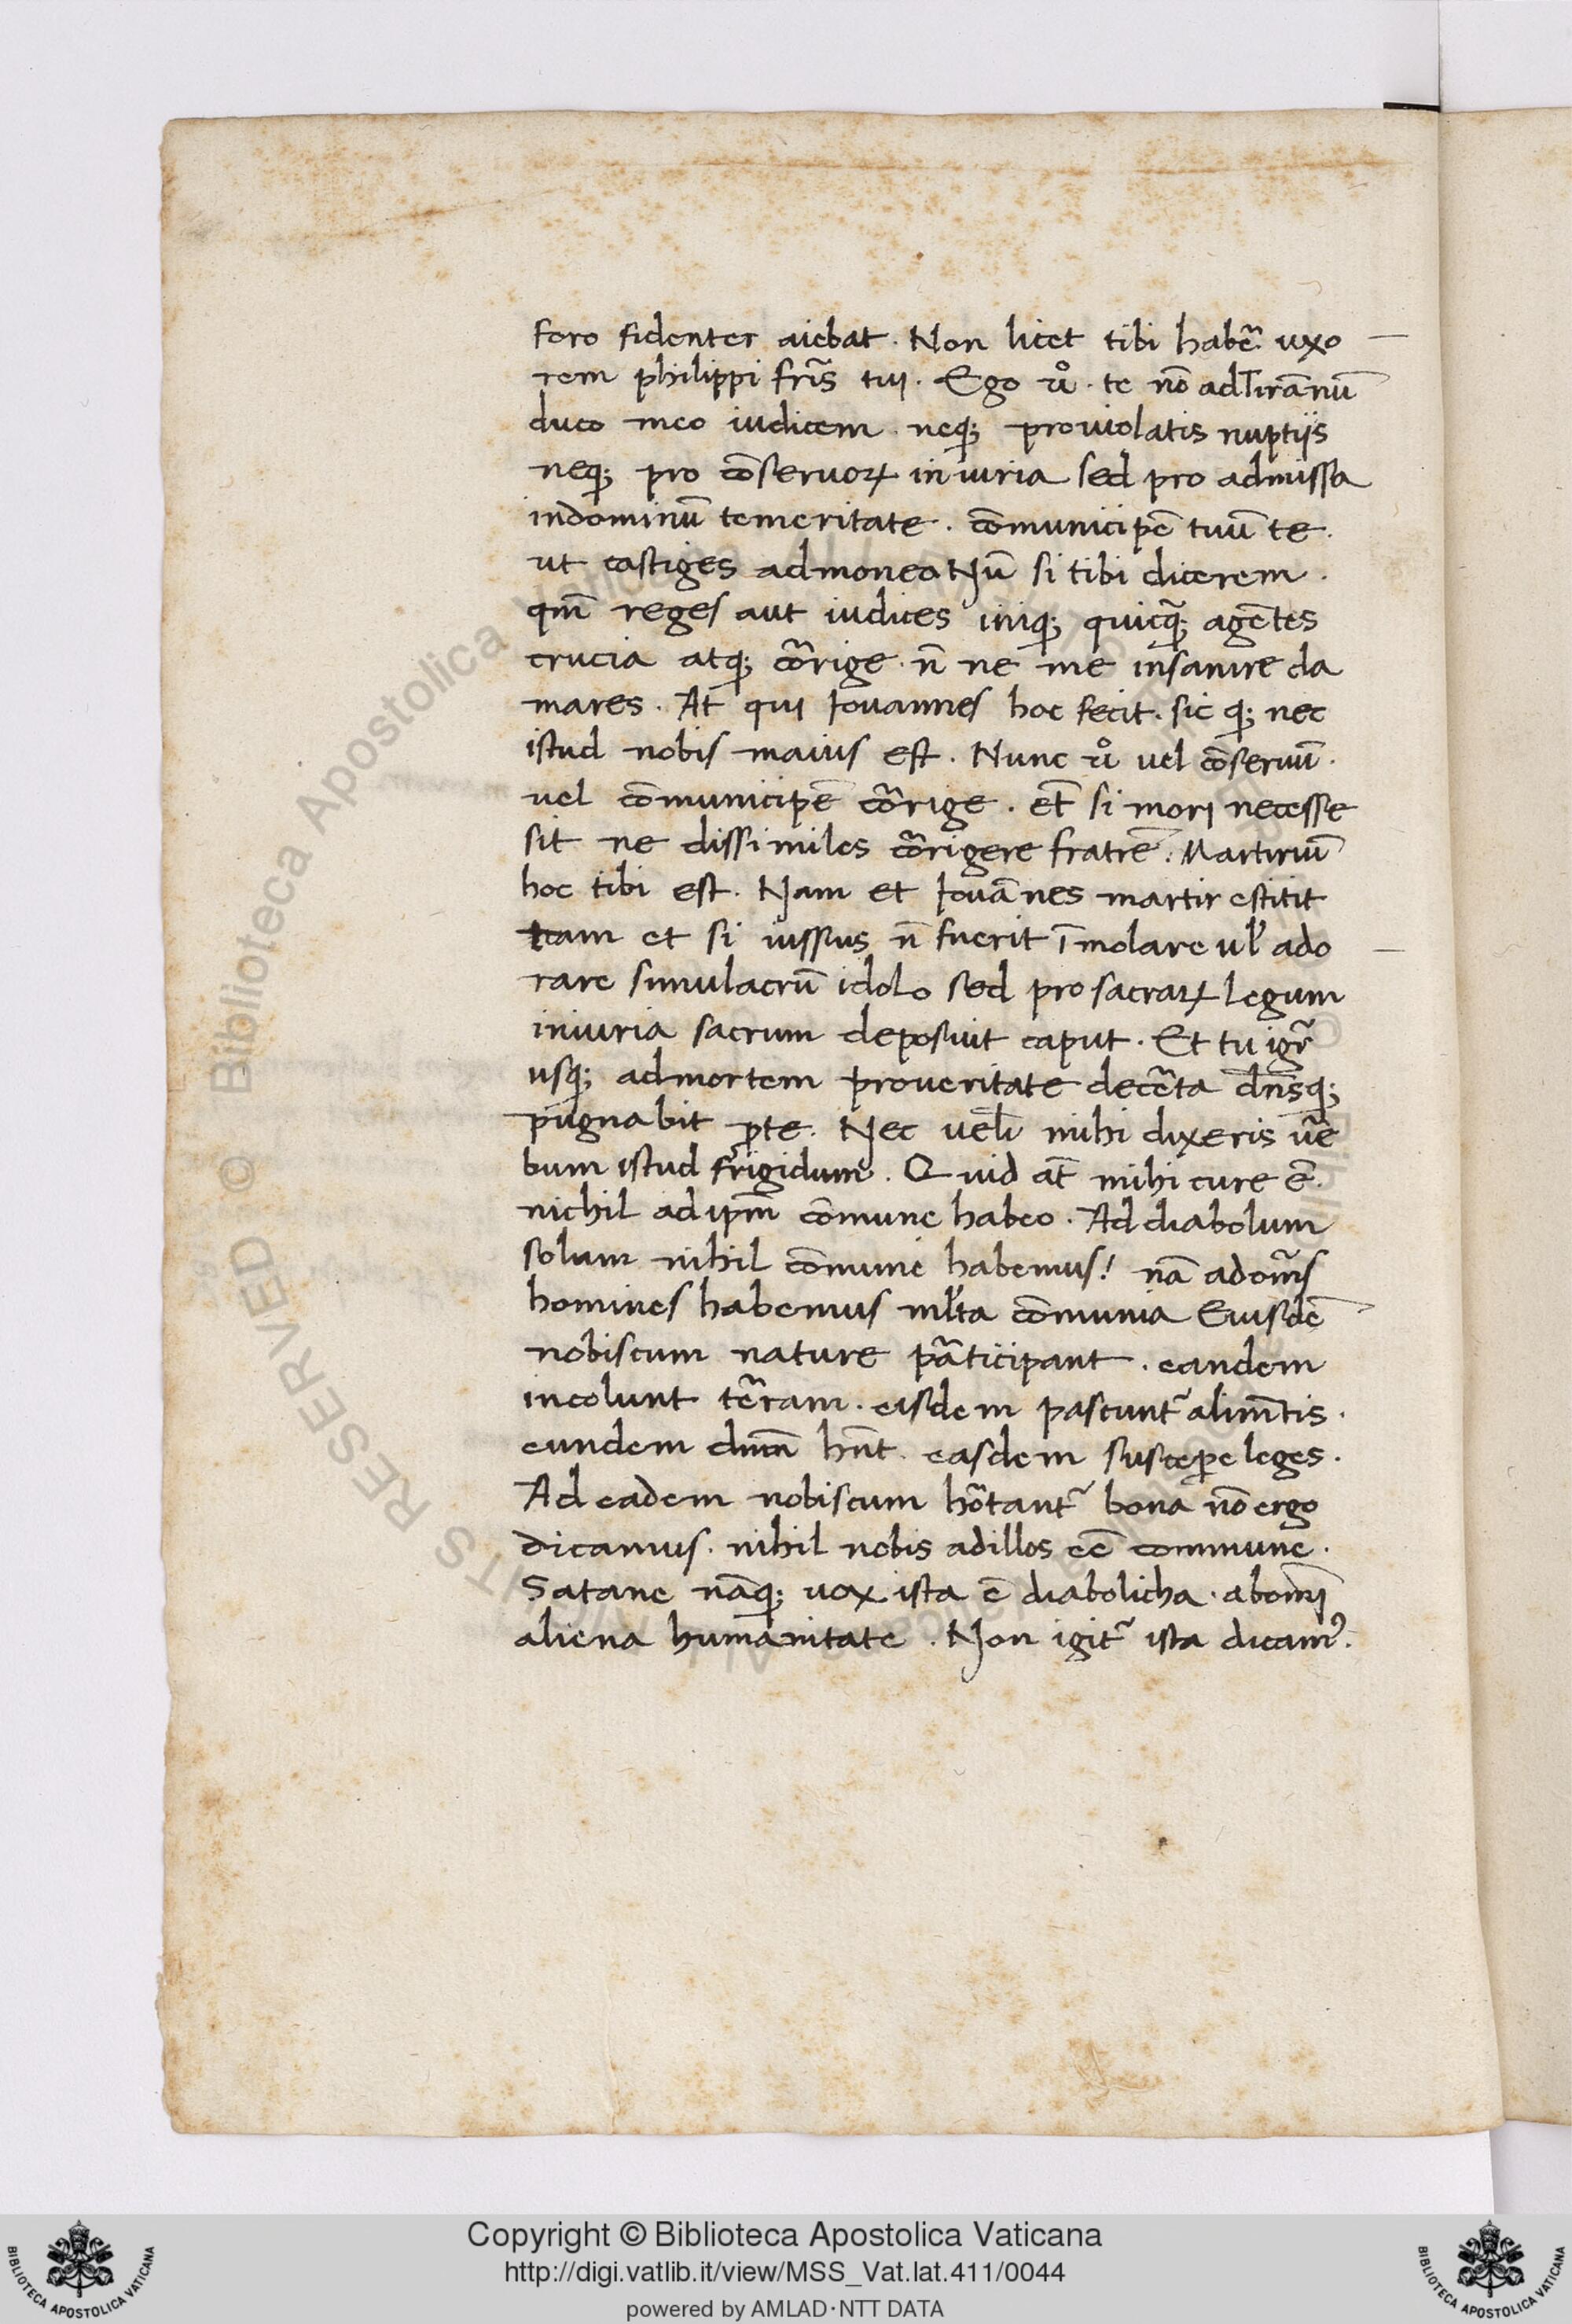 foro fidenter aiebat. Non licet tibi habē uxo
rem philippi fr̄is tui. Ego ůo. te nō ad Tirānū
duco meo iudicem. neq; pro uiolatis nuptijs
neq; pro cōseruoꝝ iniuria sed pro admissa
indominū temeritate. cōmunicipē tuū te.
ut castiges admoneo Nū si tibi dicerem.
qm̄ reges aut iudices iniq; quicq̄; agētes
crucia atq; cōrige. n̄ ne me insanire cla
mares. At qui Iouannes hoc fecit. sic q; nec
istud nobis maius est. Nunc ůo uel cōseruū.
uel cōmunicipē cōrige. et̄ si mori necesse
sit ne dissimiles cōrigere fratrē. Martiriū
hoc tibi est. Nam et Iouānes martir estitit
nam et si iussus n̄ fuerit ī molare ul̓ ado
rare simulacrū idolo sed pro sacraꝝ legum
iniuria sacrum deposuit caput. Et tu igr̄
usq; admortem proueritate decēta dn̄sq;
pugnabit ꝓte. Nec uelī mihi dixeris uē
bum istud frīgidum. Quid at̄ mihi cure ē.
nichil ad ipm̄ cōmune habeo. Ad diabolum
solum nihil cōmune habemus! nā ad om̄s
homines habemus ml̓ta cōmunia Eiusdē
nobiscum nature pāticipant. eandem
incolunt tēram. eisdem pascunt᷑ alim̄tis.
eundem dnm̄ hn̄t. easdem suscepe̱ leges.
Ad eadem nobiscum hōtant᷑ bona nō ergo
dicamus. nihil nobis adillos eē commune.
Satane nāq; uox ista ē diabolicha. ab om̄i
aliena humanitate. Non igit᷑ ista dicamꝰ.
Copyright © Biblioteca Apostolica Vaticana
http://digi.vatlib.it/view/MSS_Vat.lat.411/0044
powered by AMLAD·NTT DATA